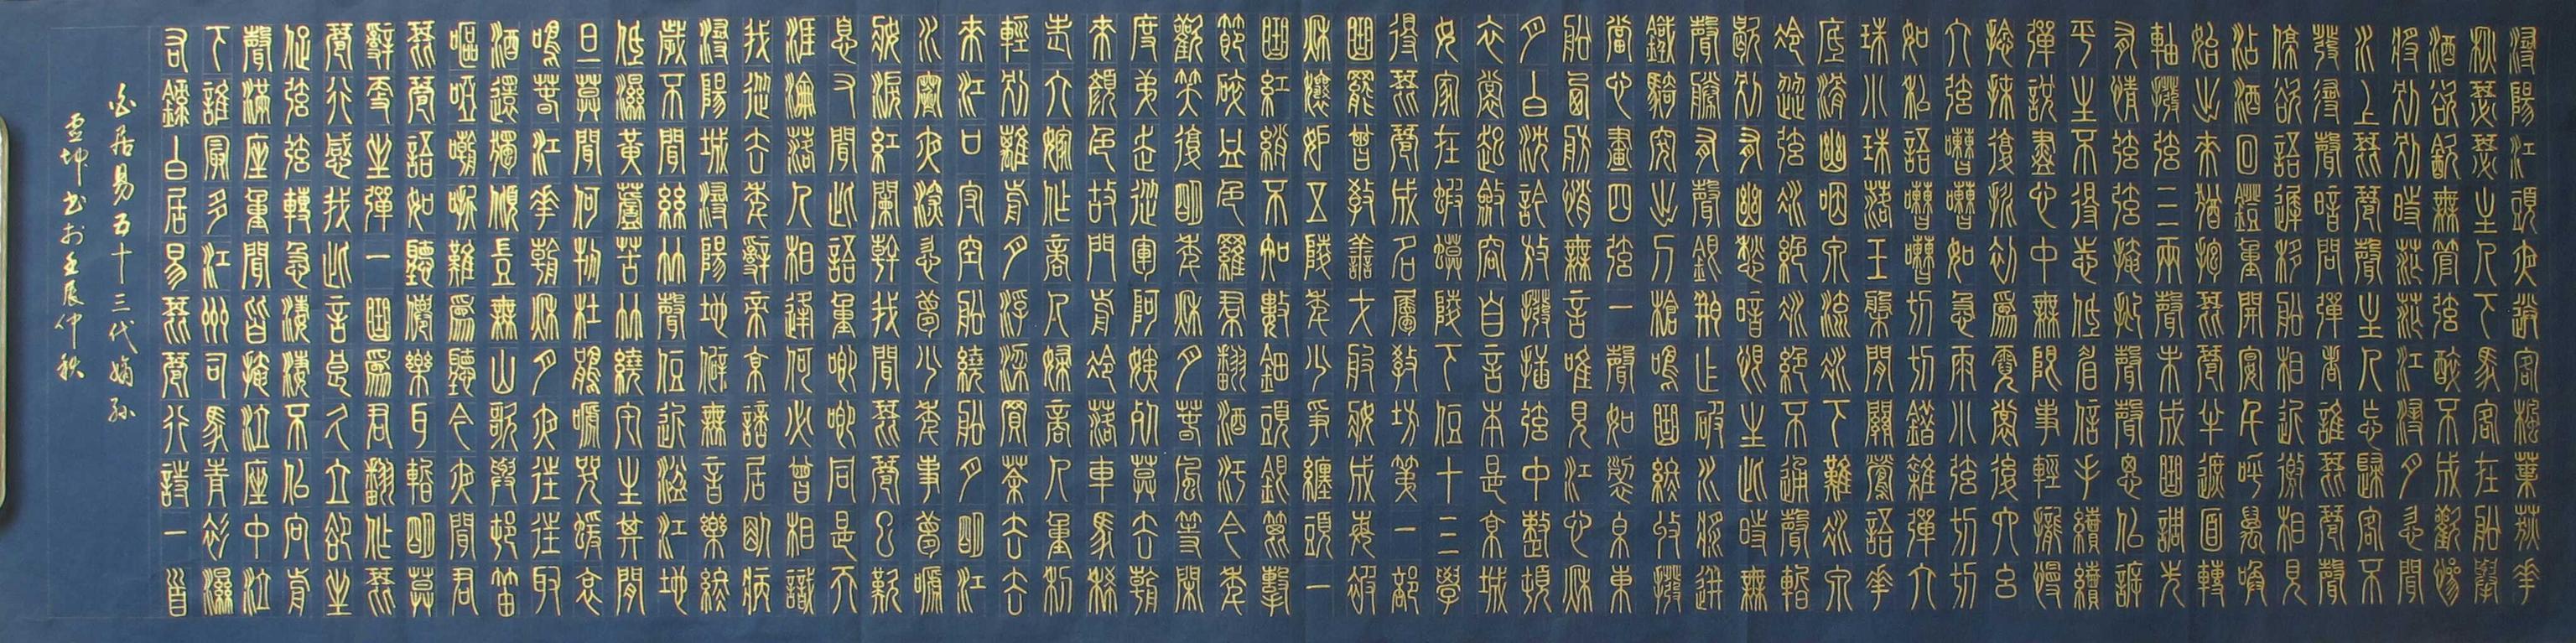 潯陽江頭夜送客楓葉荻花
秋瑟瑟主人下馬客在船舉
酒欲飲無管弦醉不成歡慘
將別別時茫茫江浸月忽聞
水上琵琶聲主人忘歸客不
發尋聲暗問彈者誰琵琶聲
停欲語遲移船相近邀相見
添酒回燈重開宴千呼萬喚
始出來猶抱琵琶半遮面轉
軸撥弦三兩聲未成曲調先
有情弦弦掩抑聲聲思似訴
平生不得志低眉信手續續
彈說盡心中無限事輕攏慢
撚抹復挑初為霓裳後六幺
大弦嘈嘈如急雨小弦切切
如私語嘈嘈切切錯雜彈大
珠小珠落玉盤間關鶯語花
底滑幽咽泉流冰下難冰泉
冷澀弦凝絕凝絕不通聲暫
歇別有幽愁暗恨生此時無
聲勝有聲銀瓶乍破水漿迸
鐵騎突出刀槍鳴曲終收撥
當心畫四弦一聲如裂帛東
船西舫悄無言唯見江心秋
月白沈吟放撥插弦中整頓
衣裳起斂容自言本是京城
女家在蝦蟆陵下住十三學
得琵琶成名屬教坊第一部
曲罷曾教善才服妝成每被
秋娘妒五陵年少爭纏頭一
曲紅綃不知數鈿頭銀篦擊
節碎血色羅裙翻酒污今年
歡笑復明年秋月春風等閒
度弟走從軍阿姨死暮去朝
來顏色故門前冷落車馬稀
老大嫁作商人婦商人重利
輕別離前月浮梁買茶去去
來江口守空船繞船月明江
水寒夜深忽夢少年事夢啼
妝淚紅闌幹我聞琵琶已歎
息又聞此語重唧唧同是天
涯淪落人相逢何必曾相識
我從去年辭帝京謫居臥病
潯陽城潯陽地僻無音樂終
歲不聞絲竹聲住近湓江地
低濕黃蘆苦竹繞宅生其間
旦暮聞何物杜鵑啼血猿哀
鳴春江花朝秋月夜往往取
酒還獨傾豈無山歌與村笛
嘔啞嘲哳難為聽今夜聞君
琵琶語如聽仙樂耳暫明莫
辭更坐彈一曲為君翻作琵
琶行感我此言良久立卻坐
促弦弦轉急淒淒不似向前
聲滿座重聞皆掩泣座中泣
下誰最多江州司馬青衫濕
右錄白居易琵琶行詩一首
白居易五十三代嫡孫
雲坤書於壬辰仲秋